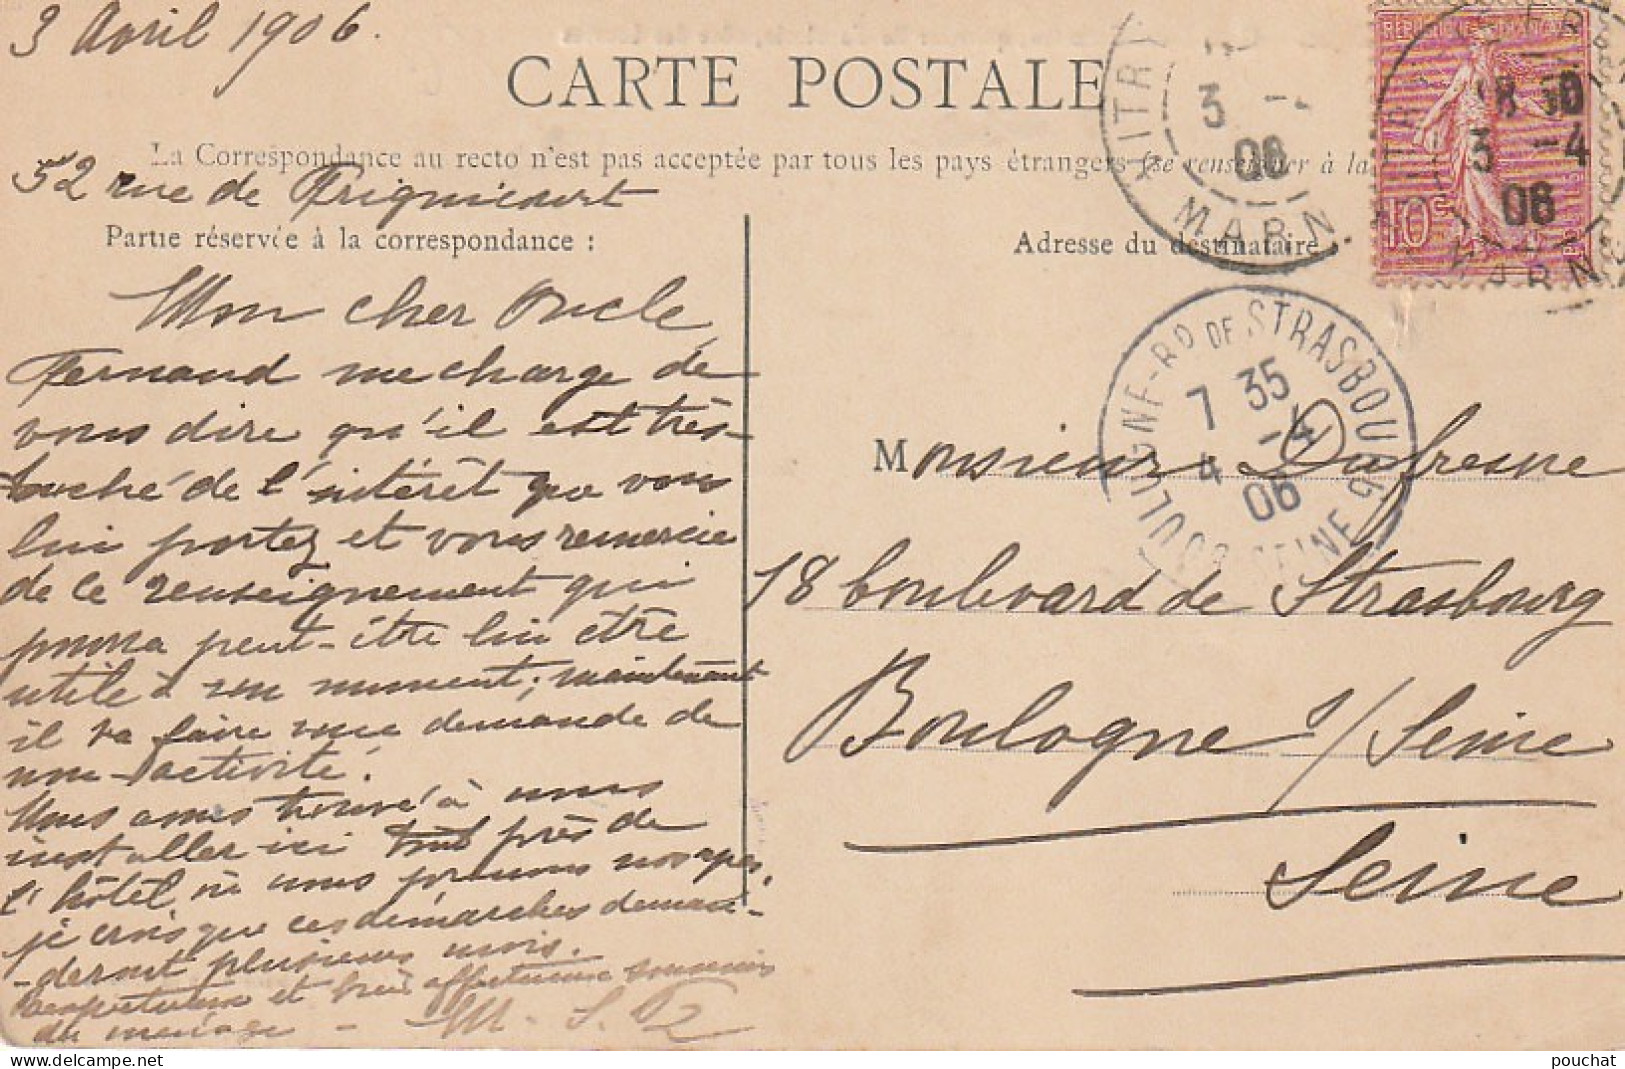 3 Avril 1906.
CARTE POSTALE
La Correspondance au recto n'est pas acceptée par tous les pays étrangers (se renseigner à la
52 rue de Frignicourt
Partie réservée à la correspondance :
Adresse du destinataire :
Mon cher Oncle,
Fernand me charge de
vous dire qu'il est très
touché de l'intérêt que vous
lui portez et vous remercie
de ce renseignement qui
pourra peut-être lui être
utile à un moment; maintenant
il va faire une demande de
non-activité.
Nous avons trouvé à nous
installer ici tout près de
l'hôtel où nous prenons nos repas.
je crois que ces démarches deman-
-deront plusieurs mois.
et très affectueux souvenirs
du ménage - M.
Monsieur Dufresne
18 boulevard de Strasbourg
Boulogne s/Seine
Seine
VITRY
3 -4
06
MARNE
REPUBLIQUE FRANÇAISE
10c
18 30
3 -4
06
MARNE
BOULOGNE-Rd DE STRASBOURG
7 35
4 -4
06
SEINE
pouchat